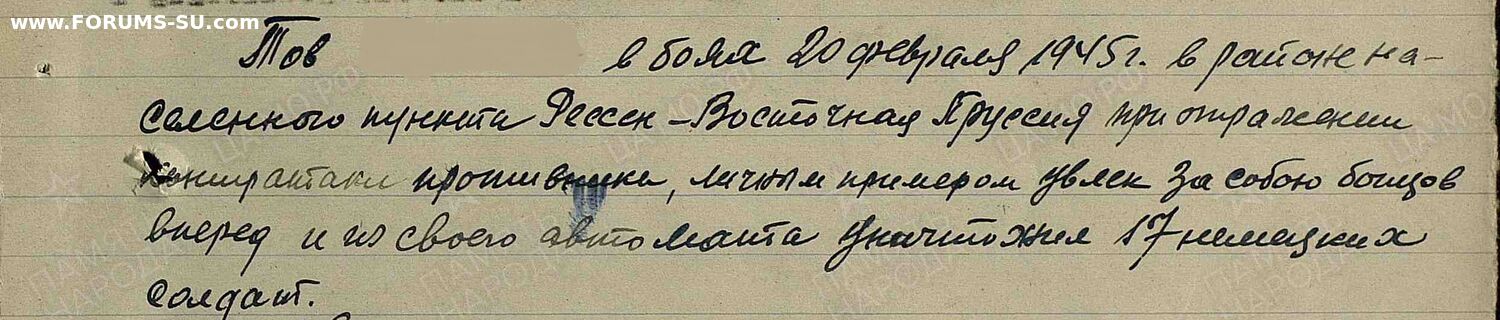 www.FORUMS-SU.com
Тов в боях 20 февраля 1945 г. в районе на-
селенного пункта Рессен - Восточная Пруссия при отражении
контратаки противника, личным примером увлек за собою бойцов
вперед и из своего автомата уничтожил 17 немецких
солдат.